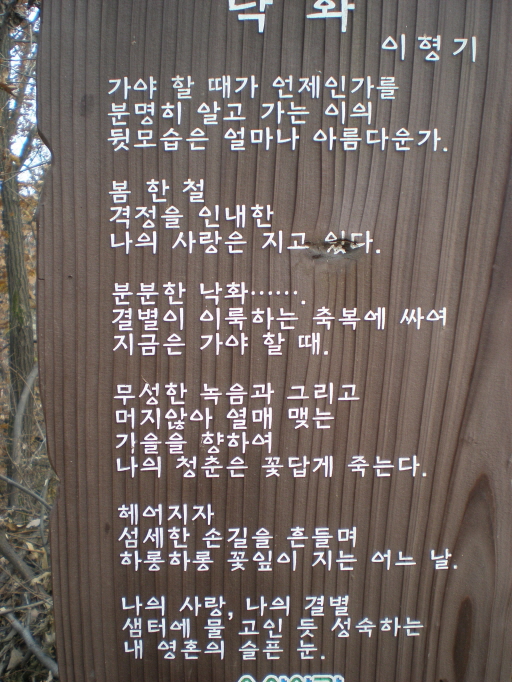 낙 화
이형기
가야 할 때가 언제인가를
분명히 알고 가는 이의
뒷모습은 얼마나 아름다운가.
봄 한 철
격정을 인내한
나의 사랑은 지고 있다.
분분한 낙화…….
결별이 이룩하는 축복에 싸여
지금은 가야 할 때.
무성한 녹음과 그리고
머지않아 열매 맺는
가을을 향하여
나의 청춘은 꽃답게 죽는다.
헤어지자
섬세한 손길을 흔들며
하롱하롱 꽃잎이 지는 어느 날.
나의 사랑, 나의 결별
샘터에 물 고인 듯 성숙하는
내 영혼의 슬픈 눈.